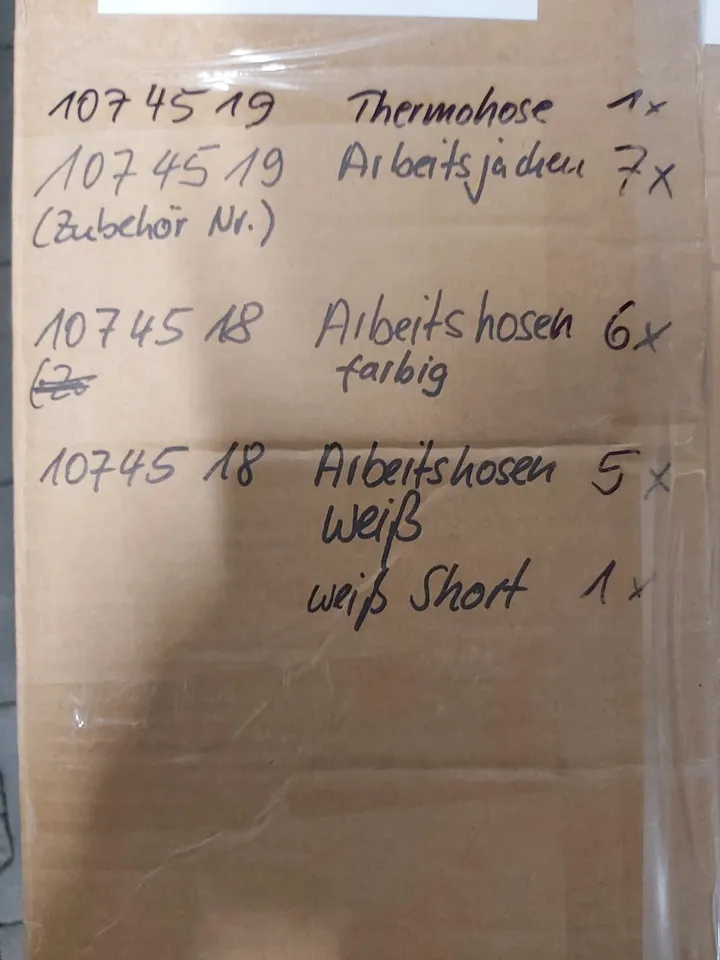 1074519 Thermohose 1x
1074519 Arbeitsjacken 7x
(Zubehör Nr.)
1074518 Arbeitshosen 6x
farbig
1074518 Arbeitshosen 5x
weiß
weiß Short 1x